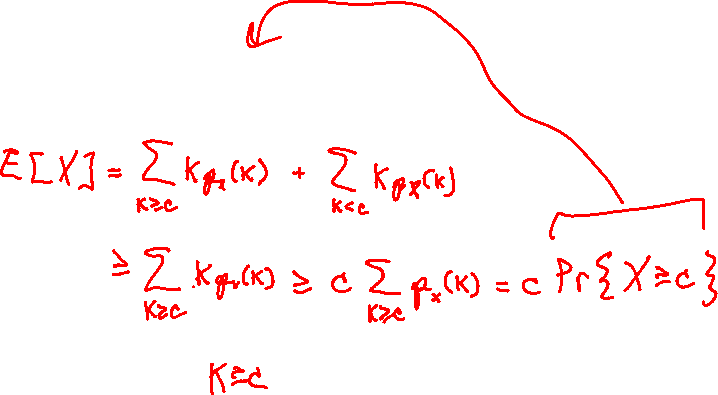 E[X] = ∑_{K≥c} K p_x(K) + ∑_{K<c} K p_x(K)
≥ ∑_{K≥c} K p_x(K) ≥ c ∑_{K≥c} p_x(K) = c Pr{X≥c}
K≥c